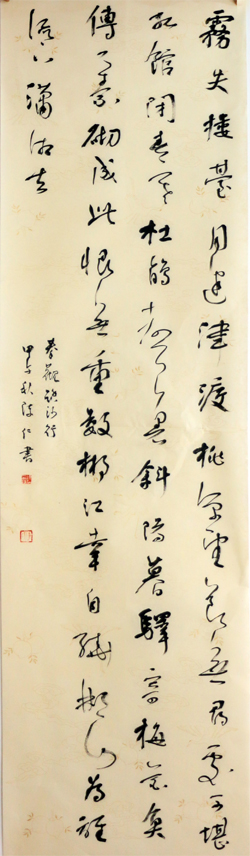 霧失樓臺月迷津渡桃源望斷無尋處可堪
孤館閉春寒杜鵑聲裏斜陽暮驛寄梅花魚
傳尺素砌成此恨無重數郴江幸自繞郴山為誰
流下瀟湘去
秦觀踏莎行
甲午秋仁書